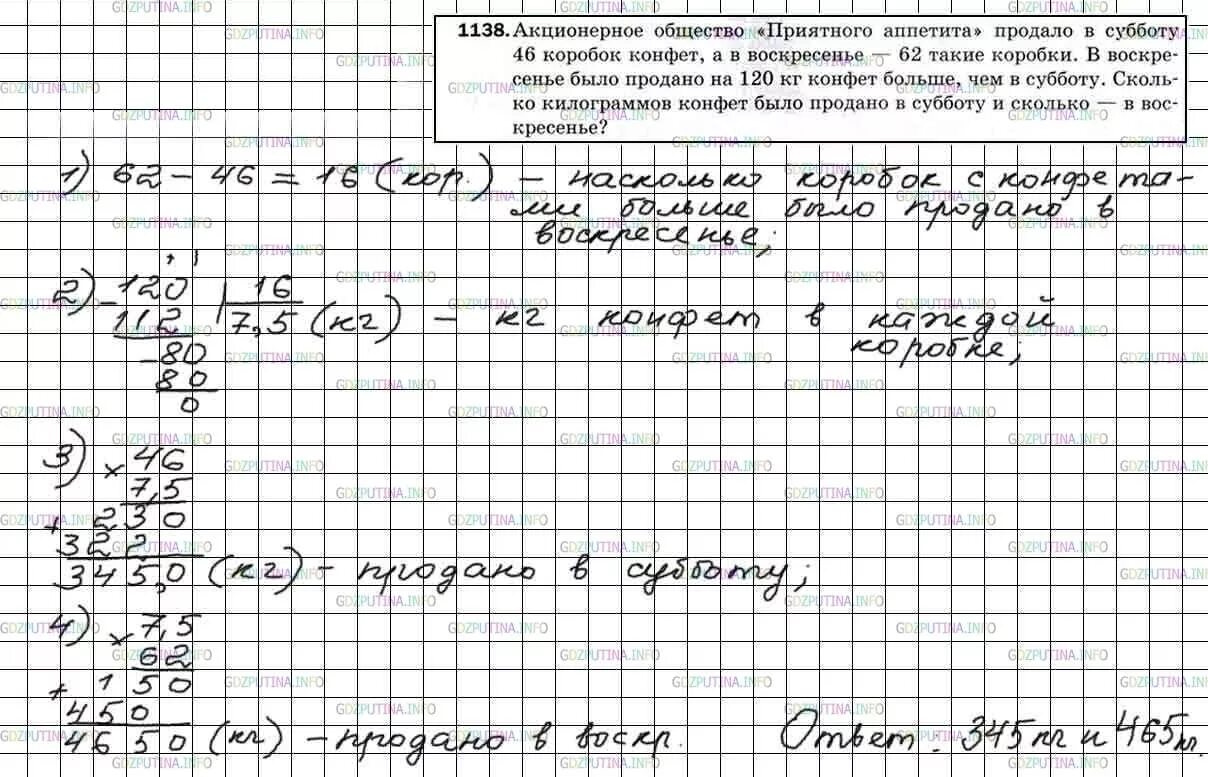 1138. Акционерное общество «Приятного аппетита» продало в субботу
46 коробок конфет, а в воскресенье — 62 такие коробки. В воскре-
сенье было продано на 120 кг конфет больше, чем в субботу. Сколь-
ко килограммов конфет было продано в субботу и сколько — в вос-
кресенье?
1) 62 - 46 = 16 (кор.) - насколько коробок с конфета-
ми больше было продано в
воскресенье;
2) - 120 | 16
112 | 7,5 (кг) - кг конфет в каждой
коробке;
- 80
80
0
3) × 46
7,5
+ 230
322
345,0 (кг) - продано в субботу;
4) × 7,5
62
+ 150
450
4650 (кг) - продано в воскр. Ответ: 345 кг и 465 кг.
GDZPUTINA.INFO